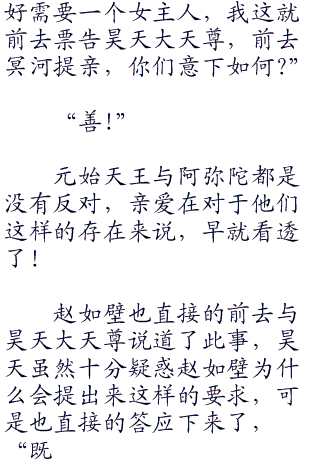 好需要一个女主人，我这就
前去票告昊天大天尊，前去
冥河提亲，你们意下如何?”
“善!”
元始天王与阿弥陀都是
没有反对，亲爱在对于他们
这样的存在来说，早就看透
了!
赵如壁也直接的前去与
昊天大天尊说道了此事，昊
天虽然十分疑惑赵如壁为什
么会提出来这样的要求，可
是也直接的答应下来了，
“既